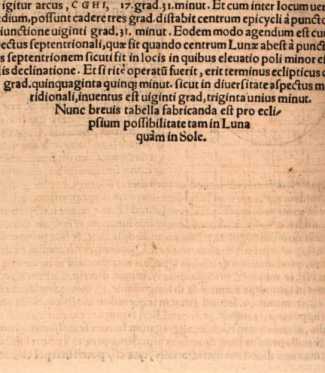 igitur arcus, CGHI, 17. grad. 31. minut. Et cum inter locum uer
edium, possunt cadere tres grad. distabit centrum epicycli à puncto
iunctione uiginti grad. 31. minut. Eodem modo agendum est cum
pectus septentrionali, quæ fit quando centrum Lunæ abest à puncto
s septentrionem sicuti sit in locis in quibus eleuatio poli minor est
is declinatione. Et si rite operatū fuerit, erit terminus eclipticus
grad. quinquaginta quinq; minut. sicut in diuersitate aspectus m
ridionali, inuentus est uiginti grad, triginta unius minut.
Nunc breuis tabella fabricanda est pro ecli-
psium possibilitate tam in Luna
quàm in Sole.